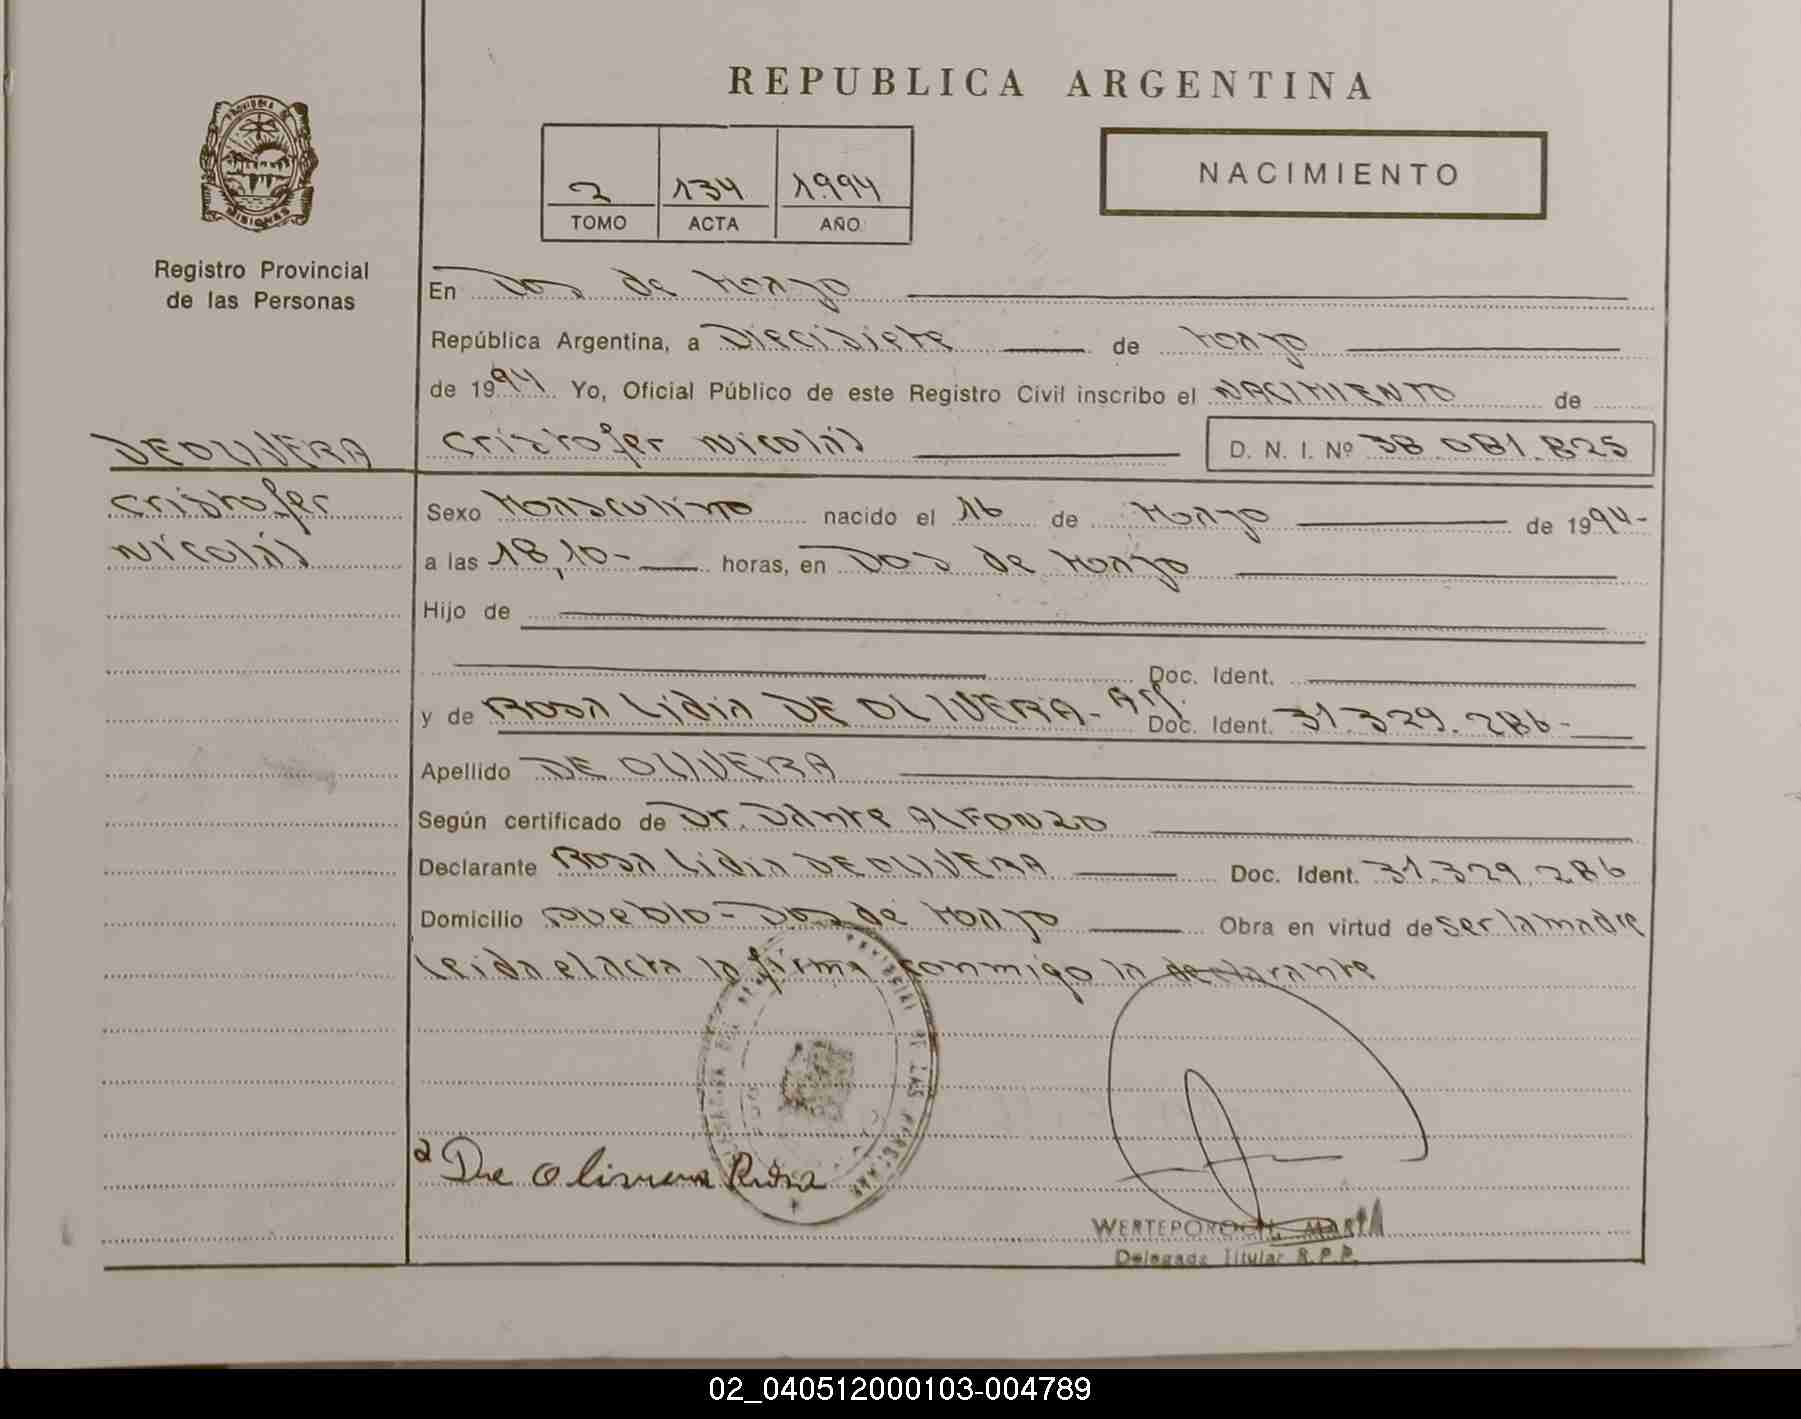 REPUBLICA ARGENTINA
PROVINCIA
MISIONES
2 134 1994
TOMO ACTA AÑO
NACIMIENTO
Registro Provincial
de las Personas
En Dos de Mayo
República Argentina, a Diecisiete de Mayo
de 1994 Yo, Oficial Público de este Registro Civil inscribo el NACIMIENTO de
DE OLIVERA
Cristofer Nicolás D. N. I. Nº 38.081.825
Cristofer
Nicolás
Sexo Masculino nacido el 16 de Mayo de 1994-
a las 18,10- horas, en Dos de Mayo
Hijo de
Doc. Ident.
y de Rosa Lidia DE OLIVERA- Arg. Doc. Ident. 31.329.286-
Apellido DE OLIVERA
Según certificado de Dr. Dante ALFONZO
Declarante Rosa Lidia DE OLIVERA Doc. Ident. 31.329.286
Domicilio Pueblo- Dos de Mayo Obra en virtud de ser la madre
Leida el acta la firma conmigo la declarante
PROVINCIAL DE LAS PERSONAS
De Olivera Rosa
WERTEPOROCH, MARTA
Delegada Titular R.P.P.
02_040512000103-004789